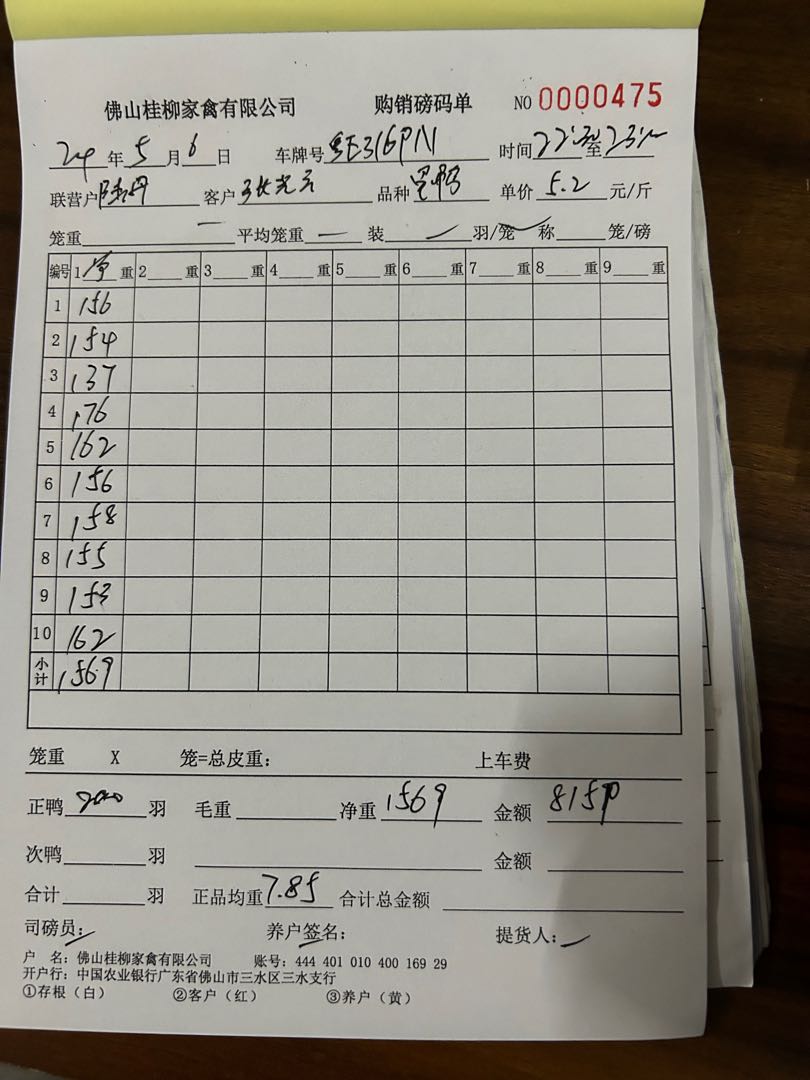 佛山桂柳家禽有限公司 购销磅码单 NO 0000475
24 年 5 月 6 日 车牌号 粤E316PN 时间 22:30 至 23:
联营户 客户 品种 单价 5.2 元/斤
笼重 — 平均笼重 — 装 羽/笼 称 笼/磅
编号 1 净 重 2 重 3 重 4 重 5 重 6 重 7 重 8 重 9 重
1 156
2 154
3 137
4 176
5 162
6 156
7 158
8 155
9 153
10 162
小计 1569
笼重 X 笼=总皮重: 上车费
正鸭 200 羽 毛重 净重 1569 金额 8159
次鸭 羽 金额
合计 羽 正品均重 7.85 合计总金额
司磅员: 养户签名: 提货人:
户 名: 佛山桂柳家禽有限公司 账号: 444 401 010 400 169 29
开户行: 中国农业银行广东省佛山市三水区三水支行
①存根（白） ②客户（红） ③养户（黄）